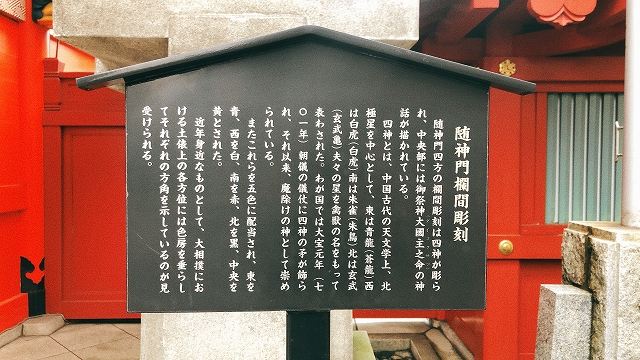 随神門欄間彫刻
随神門四方の欄間彫刻は四神が彫ら
れ、中央部には御祭神大國主之命の神
話が描かれている。
四神とは、中国古代の天文学上、北
極星を中心として、東は青龍（蒼龍）西
は白虎（白虎）南は朱雀（朱鳥）北は玄武
（玄武亀）夫々の星を禽獣の名をもって
表わされた。わが国では大宝元年（七
〇一年）朝儀の儀仗に四神の矛が飾ら
れ、それ以来、魔除けの神として崇め
られている。
またこれらを五色に配当され、東を
青、西を白、南を赤、北を黒、中央を
黄とされた。
近年身近なものとして、大相撲にお
ける土俵上の各方位には色房を垂らし
てそれぞれの方角を示しているのが見
受けられる。